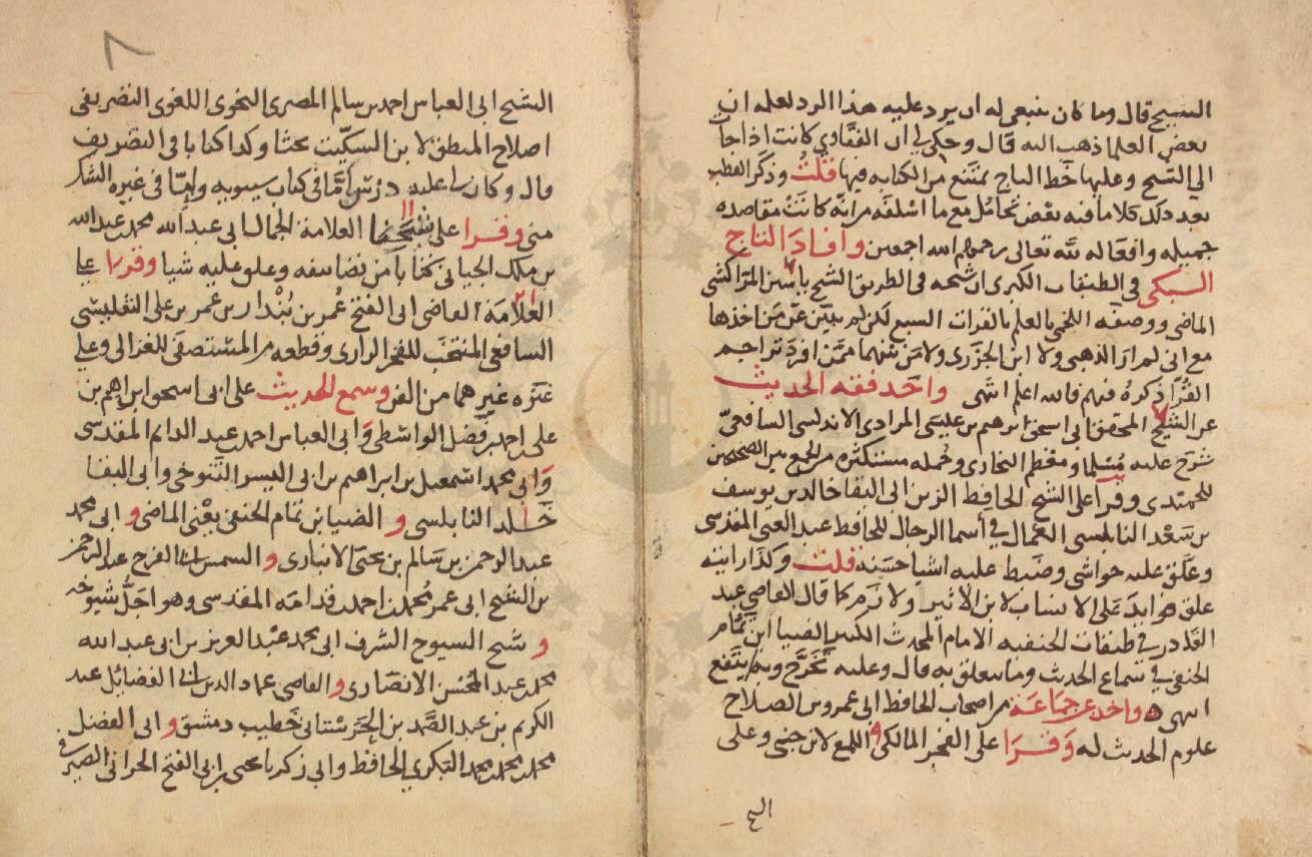 الشيخ قال وما كان ينبغي له ان يرد عليه هذا الرد لعله ان
بعض العلما ذهب اليه قال وحكي لي ان الفتاوي كانت اذا جات
الي الشيخ وعليها خط التاج يمتنع من الكتابه فيها قلت وذكر القطب
بعد ذلك كلاما فيه بعض تحامل مع ما اسلفه من انه كانت مقاصده
جميله وافعاله لله تعالى رحمهم الله اجمعين وافاد التاج
السبكي في الطبقات الكبرى ان شيخه في الطريق الشيخ ياسين المراكشي
الماضي ووصفه اللخمي بالعلم بالقرات السبع لكن لم يبين عمن اخذها
مع اني لم ار الذهبي ولا ابن الجزري ولا من بينهما ممن افرد تراجم
القرا ذكره فيهم فالله اعلم انتهى واخذ فقه الحديث
عن الشيخ المحقق ابي اسحق ابرهيم بن عيسى المرادي الاندلسي الشافعي
شرح عليه مسلما ومعظم البخاري وجمله مستكثره من الجمع بين الصحيحين
للحميدي وقرا على الشيخ الحافظ الزين ابي البقا خالد بن يوسف
بن سعد النابلسي الكمال في اسما الرجال للحافظ عبد الغني المقدسي
وعلق عليه حواشي وضبط عليه اشيا حسنه قلت وكذا رايته
علق فوايد على الانساب لابن الاثير ولازم كما قال القاضي عبد
القادر في طبقات الحنفيه الامام المحدث الكبير الضيا ابن تمام
الحنفي في سماع الحديث وما يتعلق به قال وعليه تخرج وبه ينتفع
انتهى واخذ عن جماعة من اصحاب الحافظ ابي عمرو بن الصلاح
علوم الحديث له وقرا على الفخر المالكي اللمع لابن جني وعلى
الشيخ
٨
الشيخ ابي العباس احمد بن سالم المصري النحوي اللغوي التصريفي
اصلاح المنطق لابن السكيت بحثا وكذا كتابا في التصريف
قال وكان لي عليه درس اما في كتاب سيبويه واما في غيره الشك
مني وقرا على شيخنا العلامة الجمال ابي عبد الله محمد بن عبد الله
بن ملك الجياني كتابا من تصانيفه وعلق عليه شيا وقرا على
العلامة القاضي ابي الفتح عمر بن بندار بن عمر بن علي التفليسي
الشافعي المنتخب للفخر الرازي وقطعه من المستصفى للغزالي وعلى
غيره غيرهما من الفن وسمع الحديث على ابي اسحق ابراهيم بن
علي بن احمد بن فضل الواسطي وابي العباس احمد بن عبد الدائم المقدسي
وابي محمد اسمعيل بن ابراهيم بن ابي اليسر التنوخي وابي البقا
خالد النابلسي و الضيا بن تمام الحنفي يعني الماضي و ابي محمد
عبد الرحمن بن سالم بن يحيى الانباري و الشمس ابي الفرج عبد الرحمن
بن الشيخ ابي عمر محمد بن احمد بن قدامه المقدسي وهو اجل شيوخه
و شيخ الشيوخ الشرف ابي محمد عبد العزيز بن ابي عبد الله
محمد بن عبد المحسن الانصاري و القاضي عماد الدين ابي الفضائل عبد
الكريم بن عبد الصمد بن الحرستاني خطيب دمشق و ابي الفضل
محمد بن محمد بن محمد البكري الحافظ وابي زكريا يحيى بن ابي الفتح الحراني الصيرفي